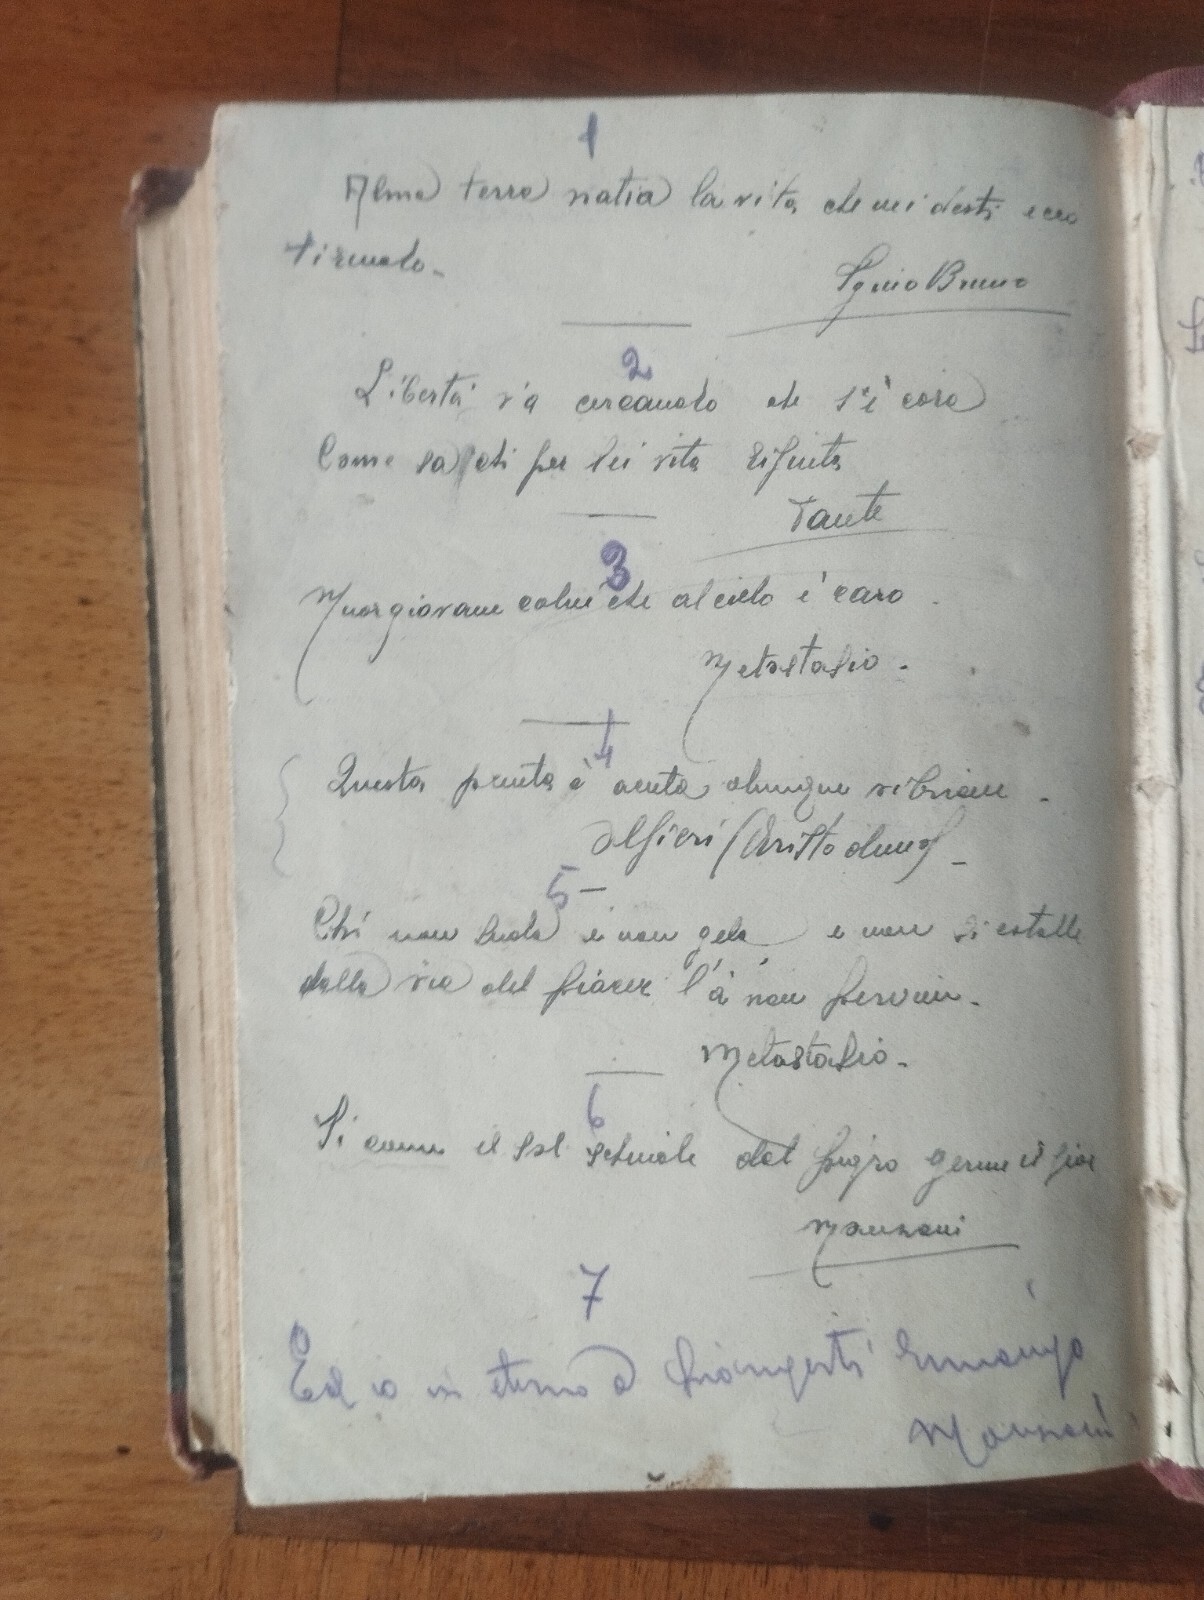 1
Alma terra natia la vita che mi desti ecco
ti rendo.
Bruno
2
Libertà va cercando ch si è cara
Come sa chi per lei vita rifiuta
Dante
3
Muor giovane colui che al cielo è caro
Metastasio.
4
Questa punta è acuta
Alfieri (Aristodemo) -
5 -
Chi non suda e non gela e non si estolle
dalla via del piacer là non pervien.
Metastasio.
6
Si come il sol schiude dal pigro germe il fior
Manzoni
7
Ed io in eterno a piangerti rimango
Manzoni